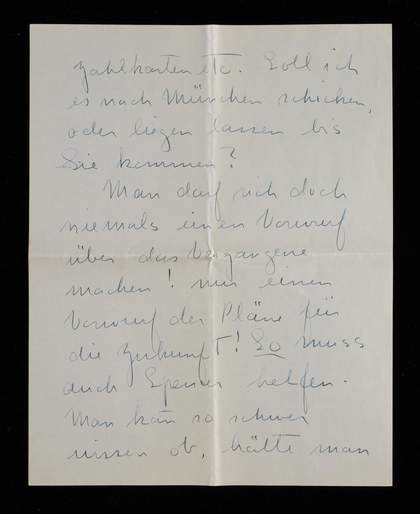 Zahlkarten etc. Soll ich
es nach München schicken,
oder liegen lassen bis
Sie kommen?
Man darf sich doch
niemals einen Vorwurf
über das Vergangene
machen! nur einen
Vorwurf der Pläne für
die Zukunft! So muss
auch Spenser helfen.
Man kan so schwer
wissen ob, hätte man